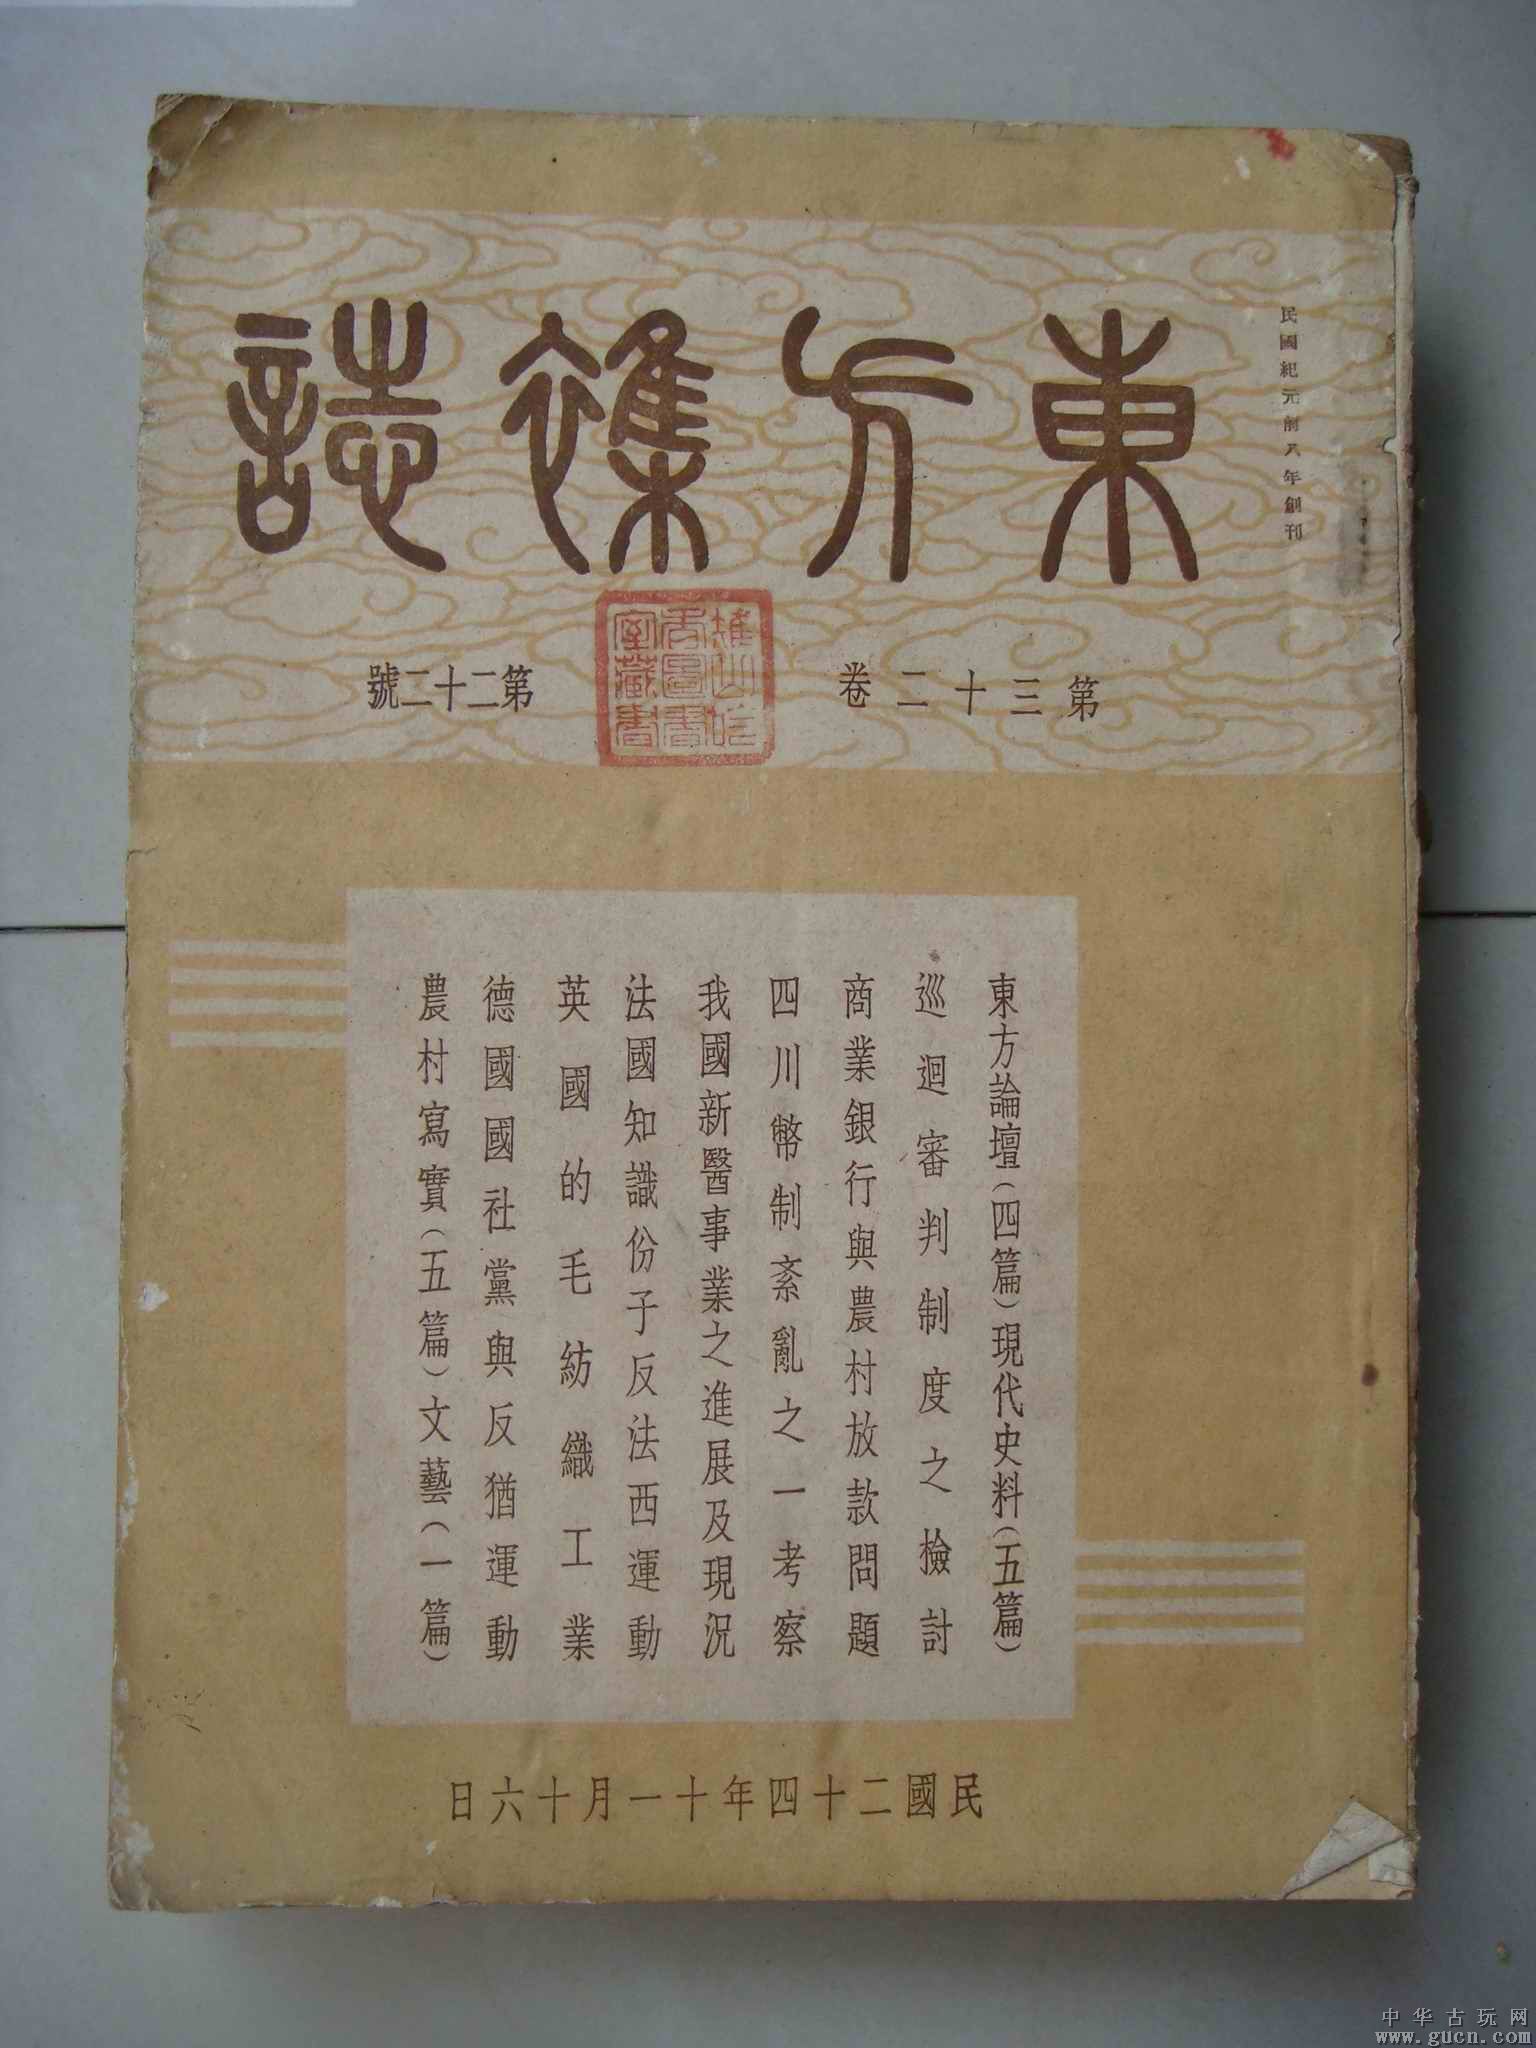 民國紀元前八年創刊
東方雜誌
第三十二卷
第二十二號
東方論壇(四篇)現代史料(五篇)
巡迴審判制度之檢討
商業銀行與農村放款問題
四川幣制紊亂之一考察
我國新醫事業之進展及現況
法國知識份子反法西運動
英國的毛紡織工業
德國國社黨與反猶運動
農村寫實(五篇)文藝(一篇)
民國二十四年十一月十六日
中华古玩网
www.gucn.com